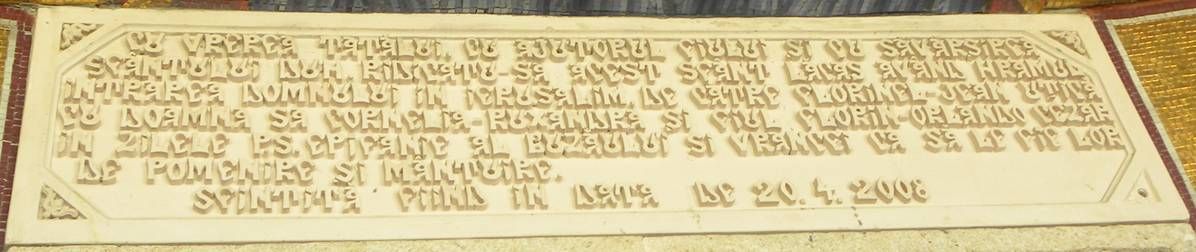 CU VREREA TATALUI, CU AJUTORUL FIULUI SI CU SAVARSIREA
SFANTULUI DUH, RIDICATU-SA ACEST SFANT LACAS AVAND HRAMUL
INTRAREA DOMNULUI IN IERUSALIM, DE CATRE FLORINEL-JEAN UTICA
CU DOAMNA SA CORNELIA-RUXANDRA SI FIUL FLORIN-ORLANDO CEZAR
IN ZILELE P.S. EPIFANIE AL BUZAULUI SI VRANCEI CA SA LE FIE LOR
DE POMENIRE SI MÂNTUIRE.
SFINTITA FIIND IN DATA DE 20.4.2008